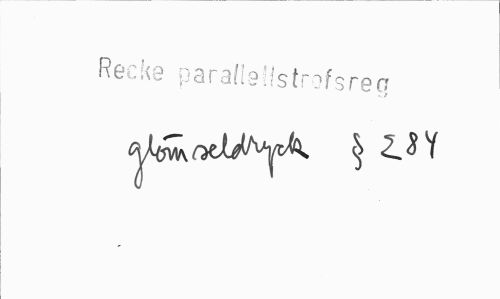 Recke parallellstrofsreg
glöm̄seldryck § Σ 84